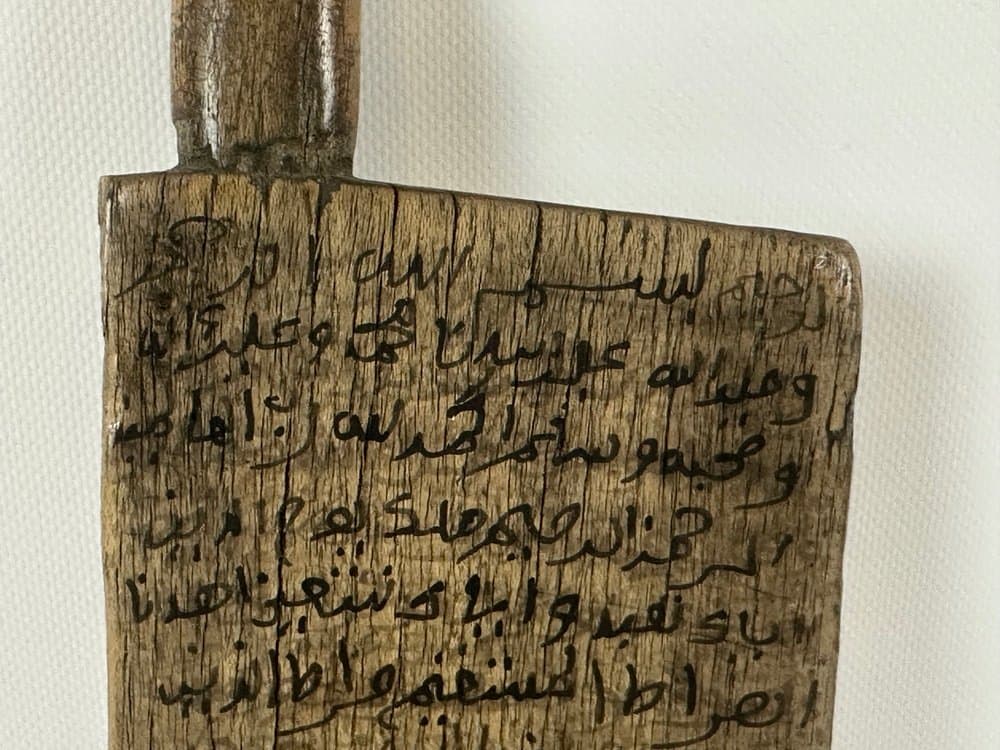 بسم الله الرحمن
الرحيم
وصلى الله على سيدنا محمد وعلى آله
وصحبه وسلم الحمد لله رب العالمين
الرحمن الرحيم ملك يوم الدين
اياك نعبد واياك نستعين اهدنا
الصراط المستقيم صراط الذين